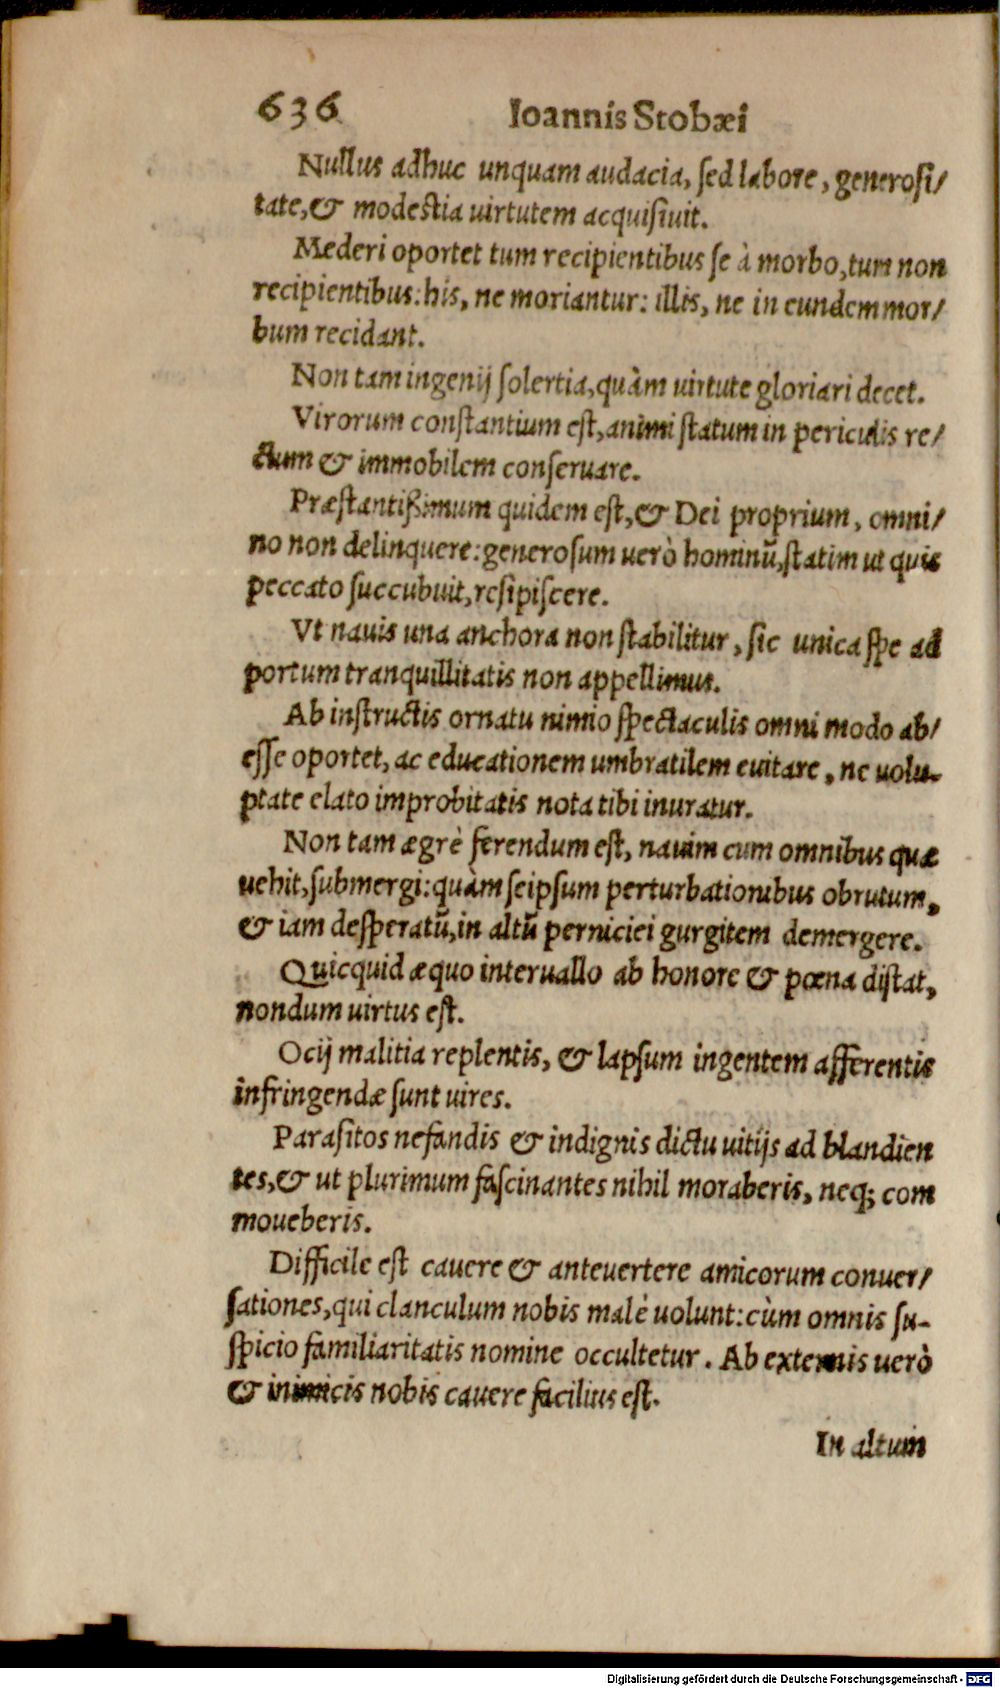 636 Ioannis Stobæi
Nullus adhuc unquam audacia, ſed labore, generoſi/
tate,& modestia uirtutem acquiſiuit.
Mederi oportet tum recipientibus ſe à morbo,tum non
recipientibus:his, ne moriantur: illis, ne in eundem mor/
bum recidant.
Non tam ingenij ſolertia,quàm uirtute gloriari decet.
Virorum conſtantium eſt,animi ſtatum in periculis re/
ctum & immobilem conſeruare.
Præſtantißimum quidem eſt,& Dei proprium, omni/
no non delinquere:generoſum uerò hominũ,ſtatim ut quis
peccato ſuccubuit,reſipiſcere.
Vt nauis una anchora non ſtabilitur, ſic unica ſpe ad
portum tranquillitatis non appellimus.
Ab inſtructis ornatu nimio ſpectaculis omni modo ab/
eſſe oportet, ac educationem umbratilem euitare, ne uolu-
ptate elato improbitatis nota tibi inuratur.
Non tam ægrè ferendum eſt, nauim cum omnibus quæ
uehit,ſubmergi:quàm ſeipſum perturbationibus obrutum,
& iam deſperatũ,in altũ perniciei gurgitem demergere.
Quicquid æquo interuallo ab honore & pœna diſtat,
nondum uirtus eſt.
Ocij malitia replentis, & lapſum ingentem afferentis
infringendæ ſunt uires.
Paraſitos nefandis & indignis dictu uitijs ad blandien
tes,& ut plurimum faſcinantes nihil moraberis, neq; com
moueberis.
Difficile eſt cauere & anteuertere amicorum conuer/
ſationes,qui clanculum nobis malè uolunt:cùm omnis ſu-
ſpicio familiaritatis nomine occultetur. Ab externis uerò
& inimicis nobis cauere facilius eſt.
In altum
Digitalisierung gefördert durch die Deutsche Forschungsgemeinschaft - DFG